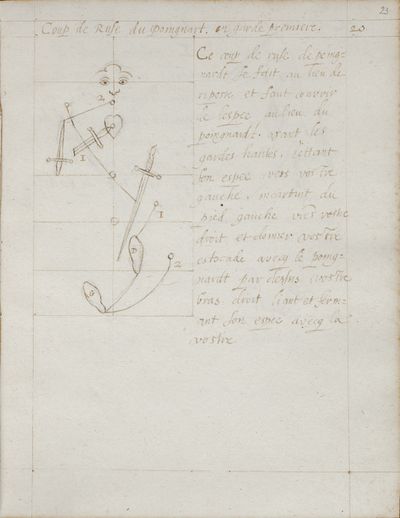 23
Coup de Ruse du Poingnart. en garde premiere. 20
Ce coup de ruse de poing-
nardt se fait au lieu de
riposte et faut couvrir
l'espee au lieu du
poingnardt. ayant les
gardes hautes. jettant
son espee vers vostre
gauche. marchant du
pied gauche vers vostre
droit et donner vostre
estocade avecq le poing-
nardt par dessus vostre
bras droit liant et ferm-
ant son espee avecq la
vostre
2
1
1
2